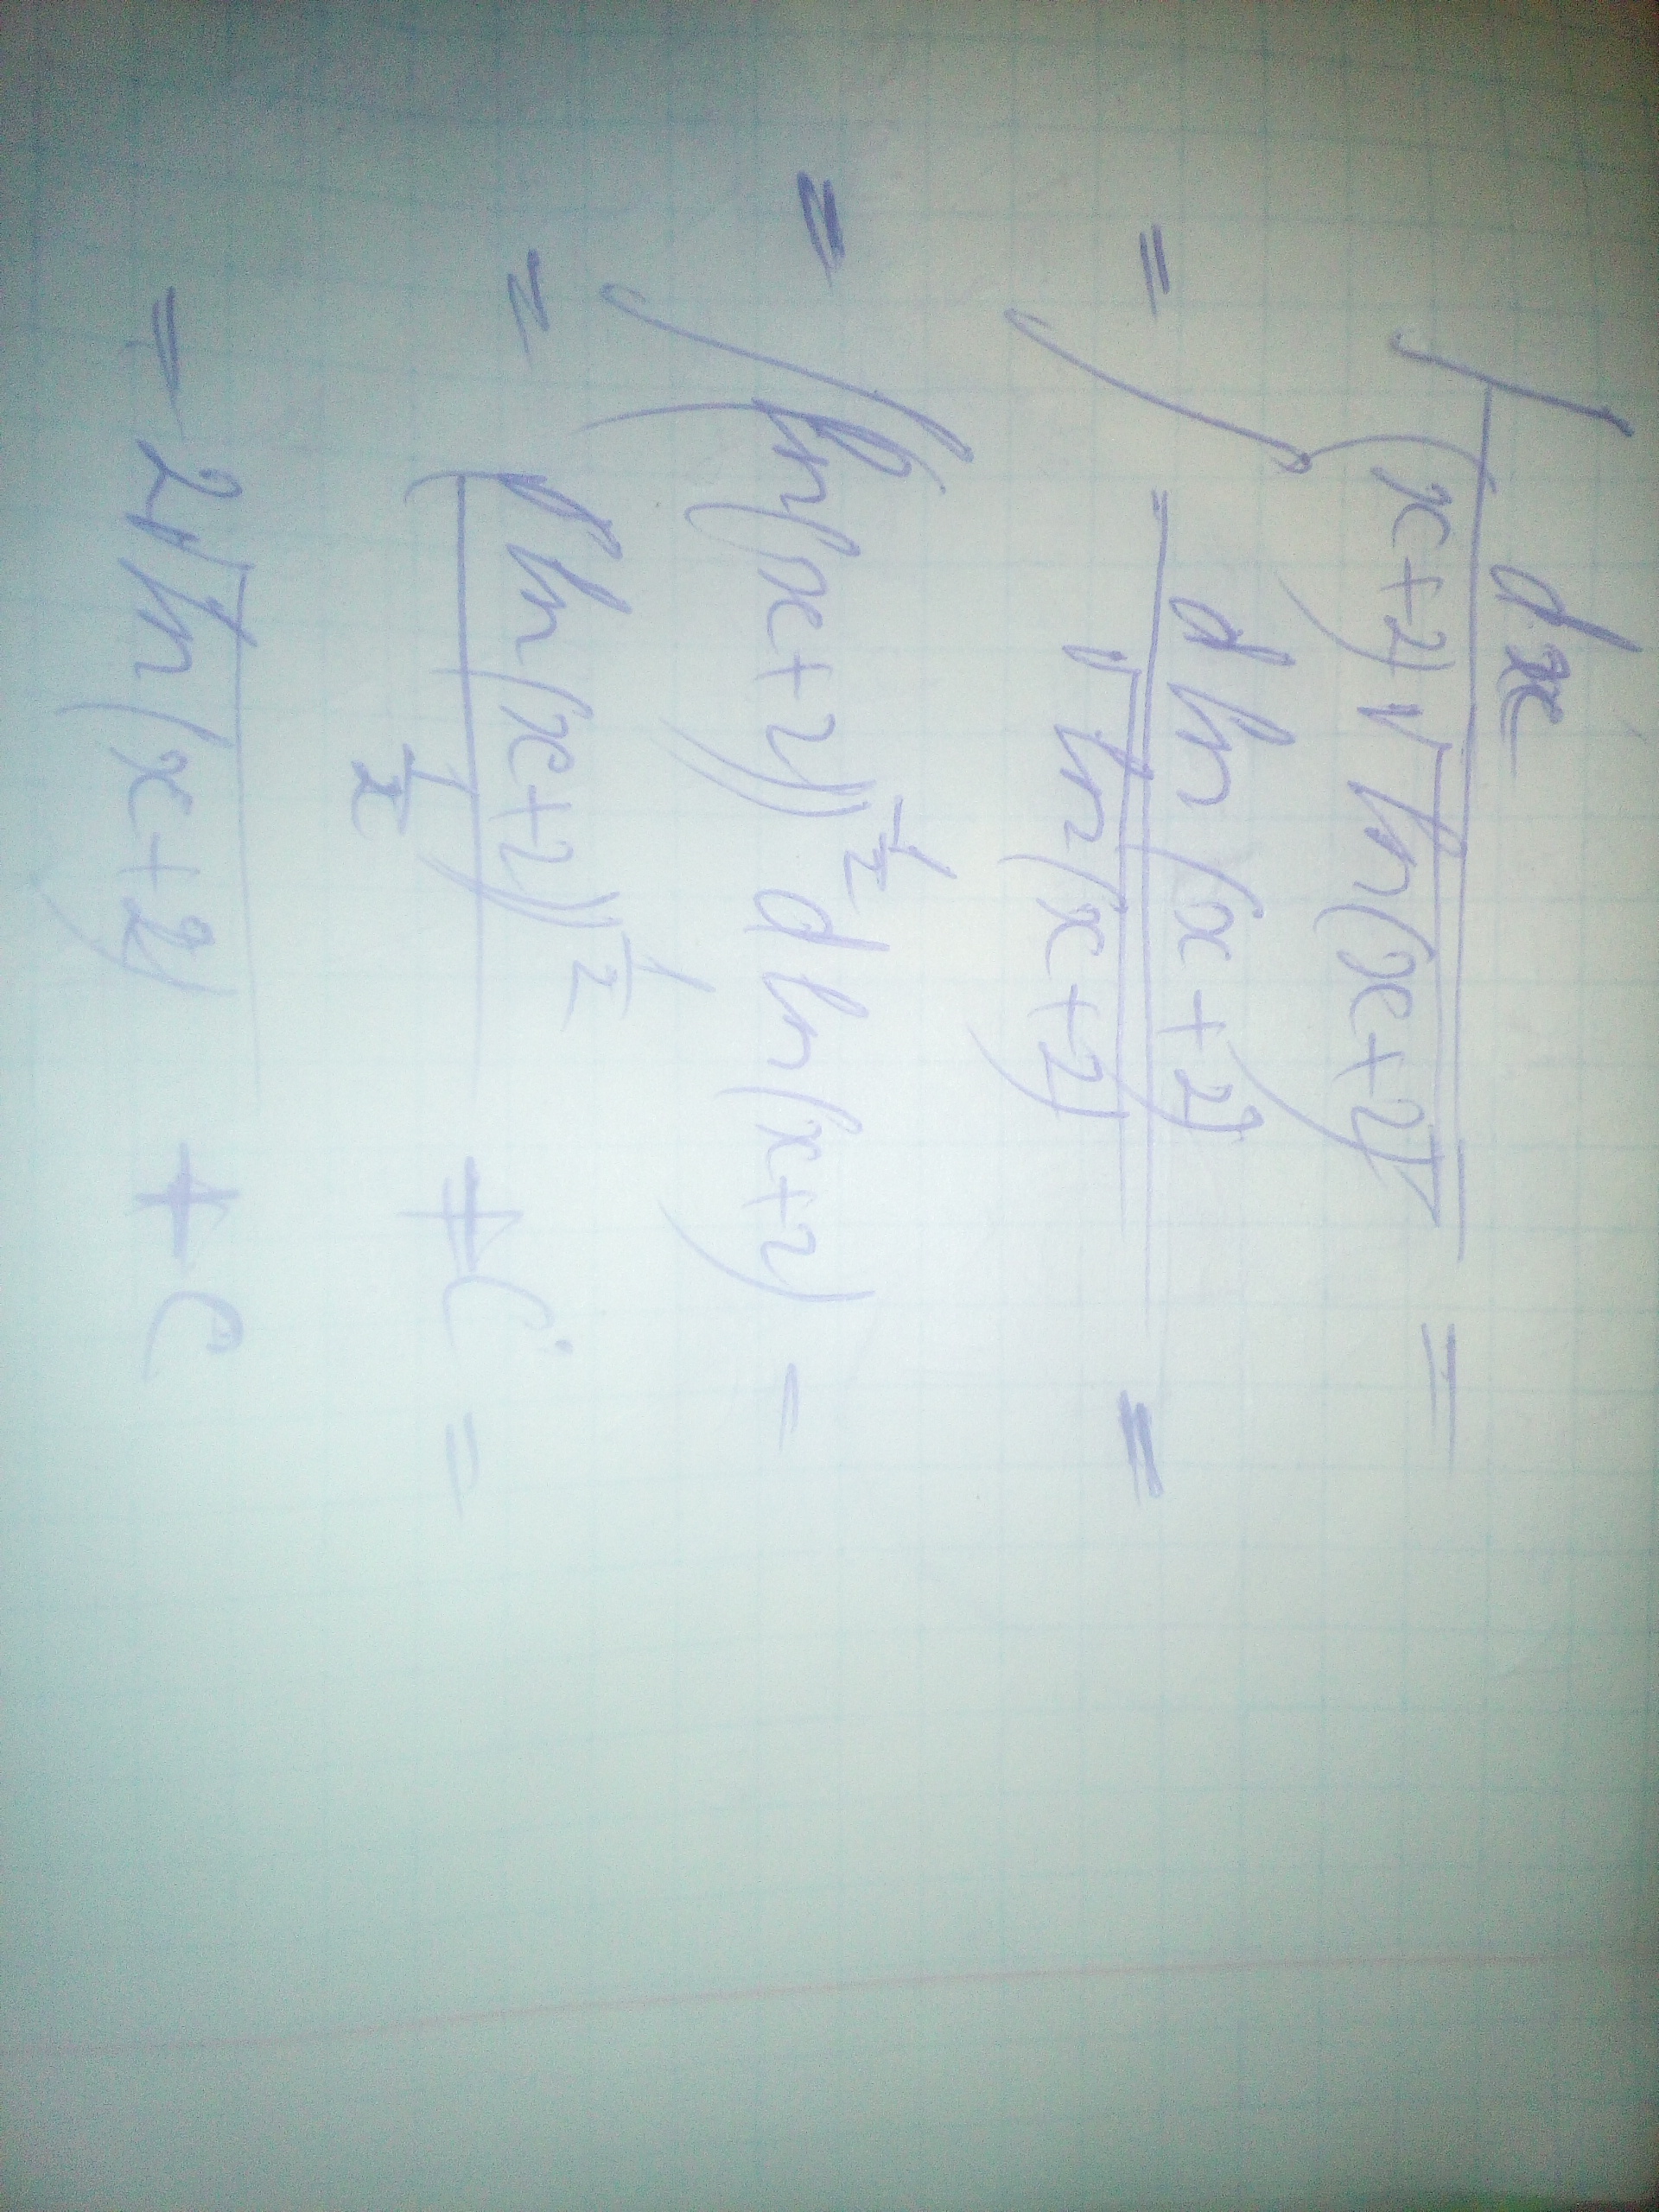 ∫ dx / ((x+2)√(ln(x+2))) =
= ∫ d ln(x+2) / √(ln(x+2)) =
= ∫ (ln(x+2))^(1/2) d ln(x+2) =
= (ln(x+2))^(1/2) / (1/2) + C =
= 2√(ln(x+2)) + C